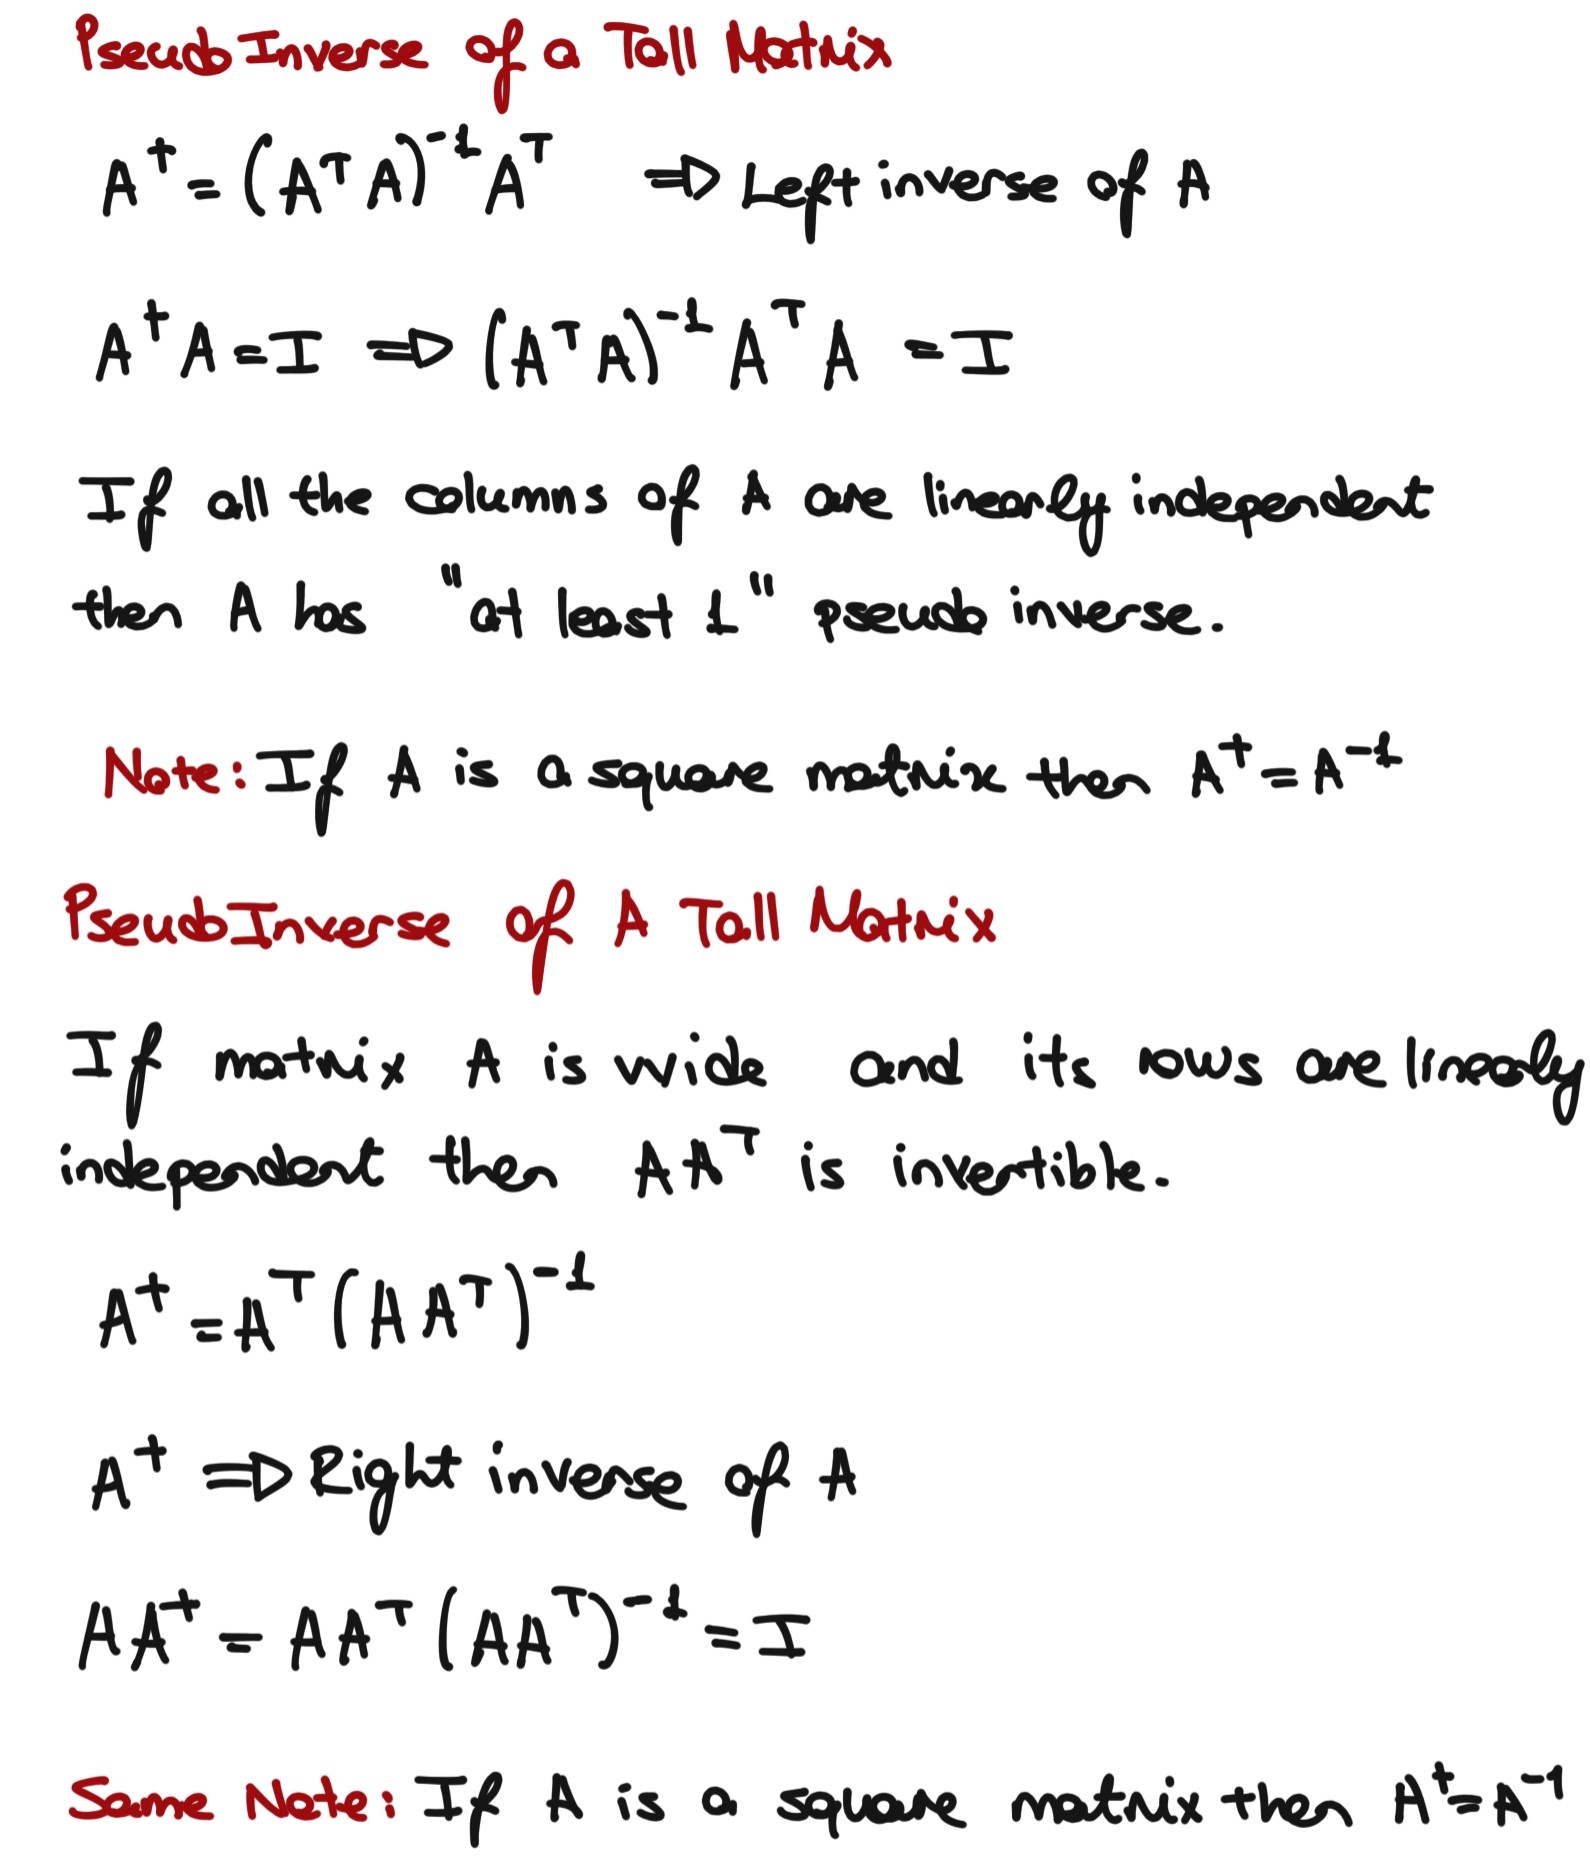 Pseudo Inverse of a Tall Matrix
A⁺ = (AᵀA)⁻¹Aᵀ ⇒ Left inverse of A
A⁺A = I ⇒ (AᵀA)⁻¹AᵀA = I
If all the columns of A are linearly independent
then A has "at least 1" pseudo inverse.
Note: If A is a square matrix then A⁺ = A⁻¹
Pseudo Inverse of A Tall Matrix
If matrix A is wide and its rows are linearly
independent then AAᵀ is invertible.
A⁺ = Aᵀ(AAᵀ)⁻¹
A⁺ ⇒ Right inverse of A
AA⁺ = AAᵀ(AAᵀ)⁻¹ = I
Same Note: If A is a square matrix then A⁺ = A⁻¹